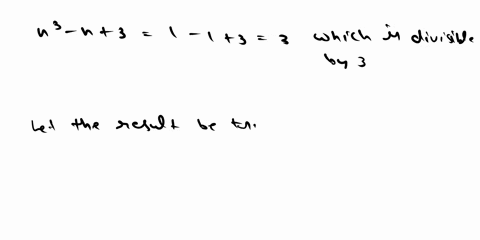 n³-n+3 = 1-1+3 = 3 which is divisible
by 3
Let the result be